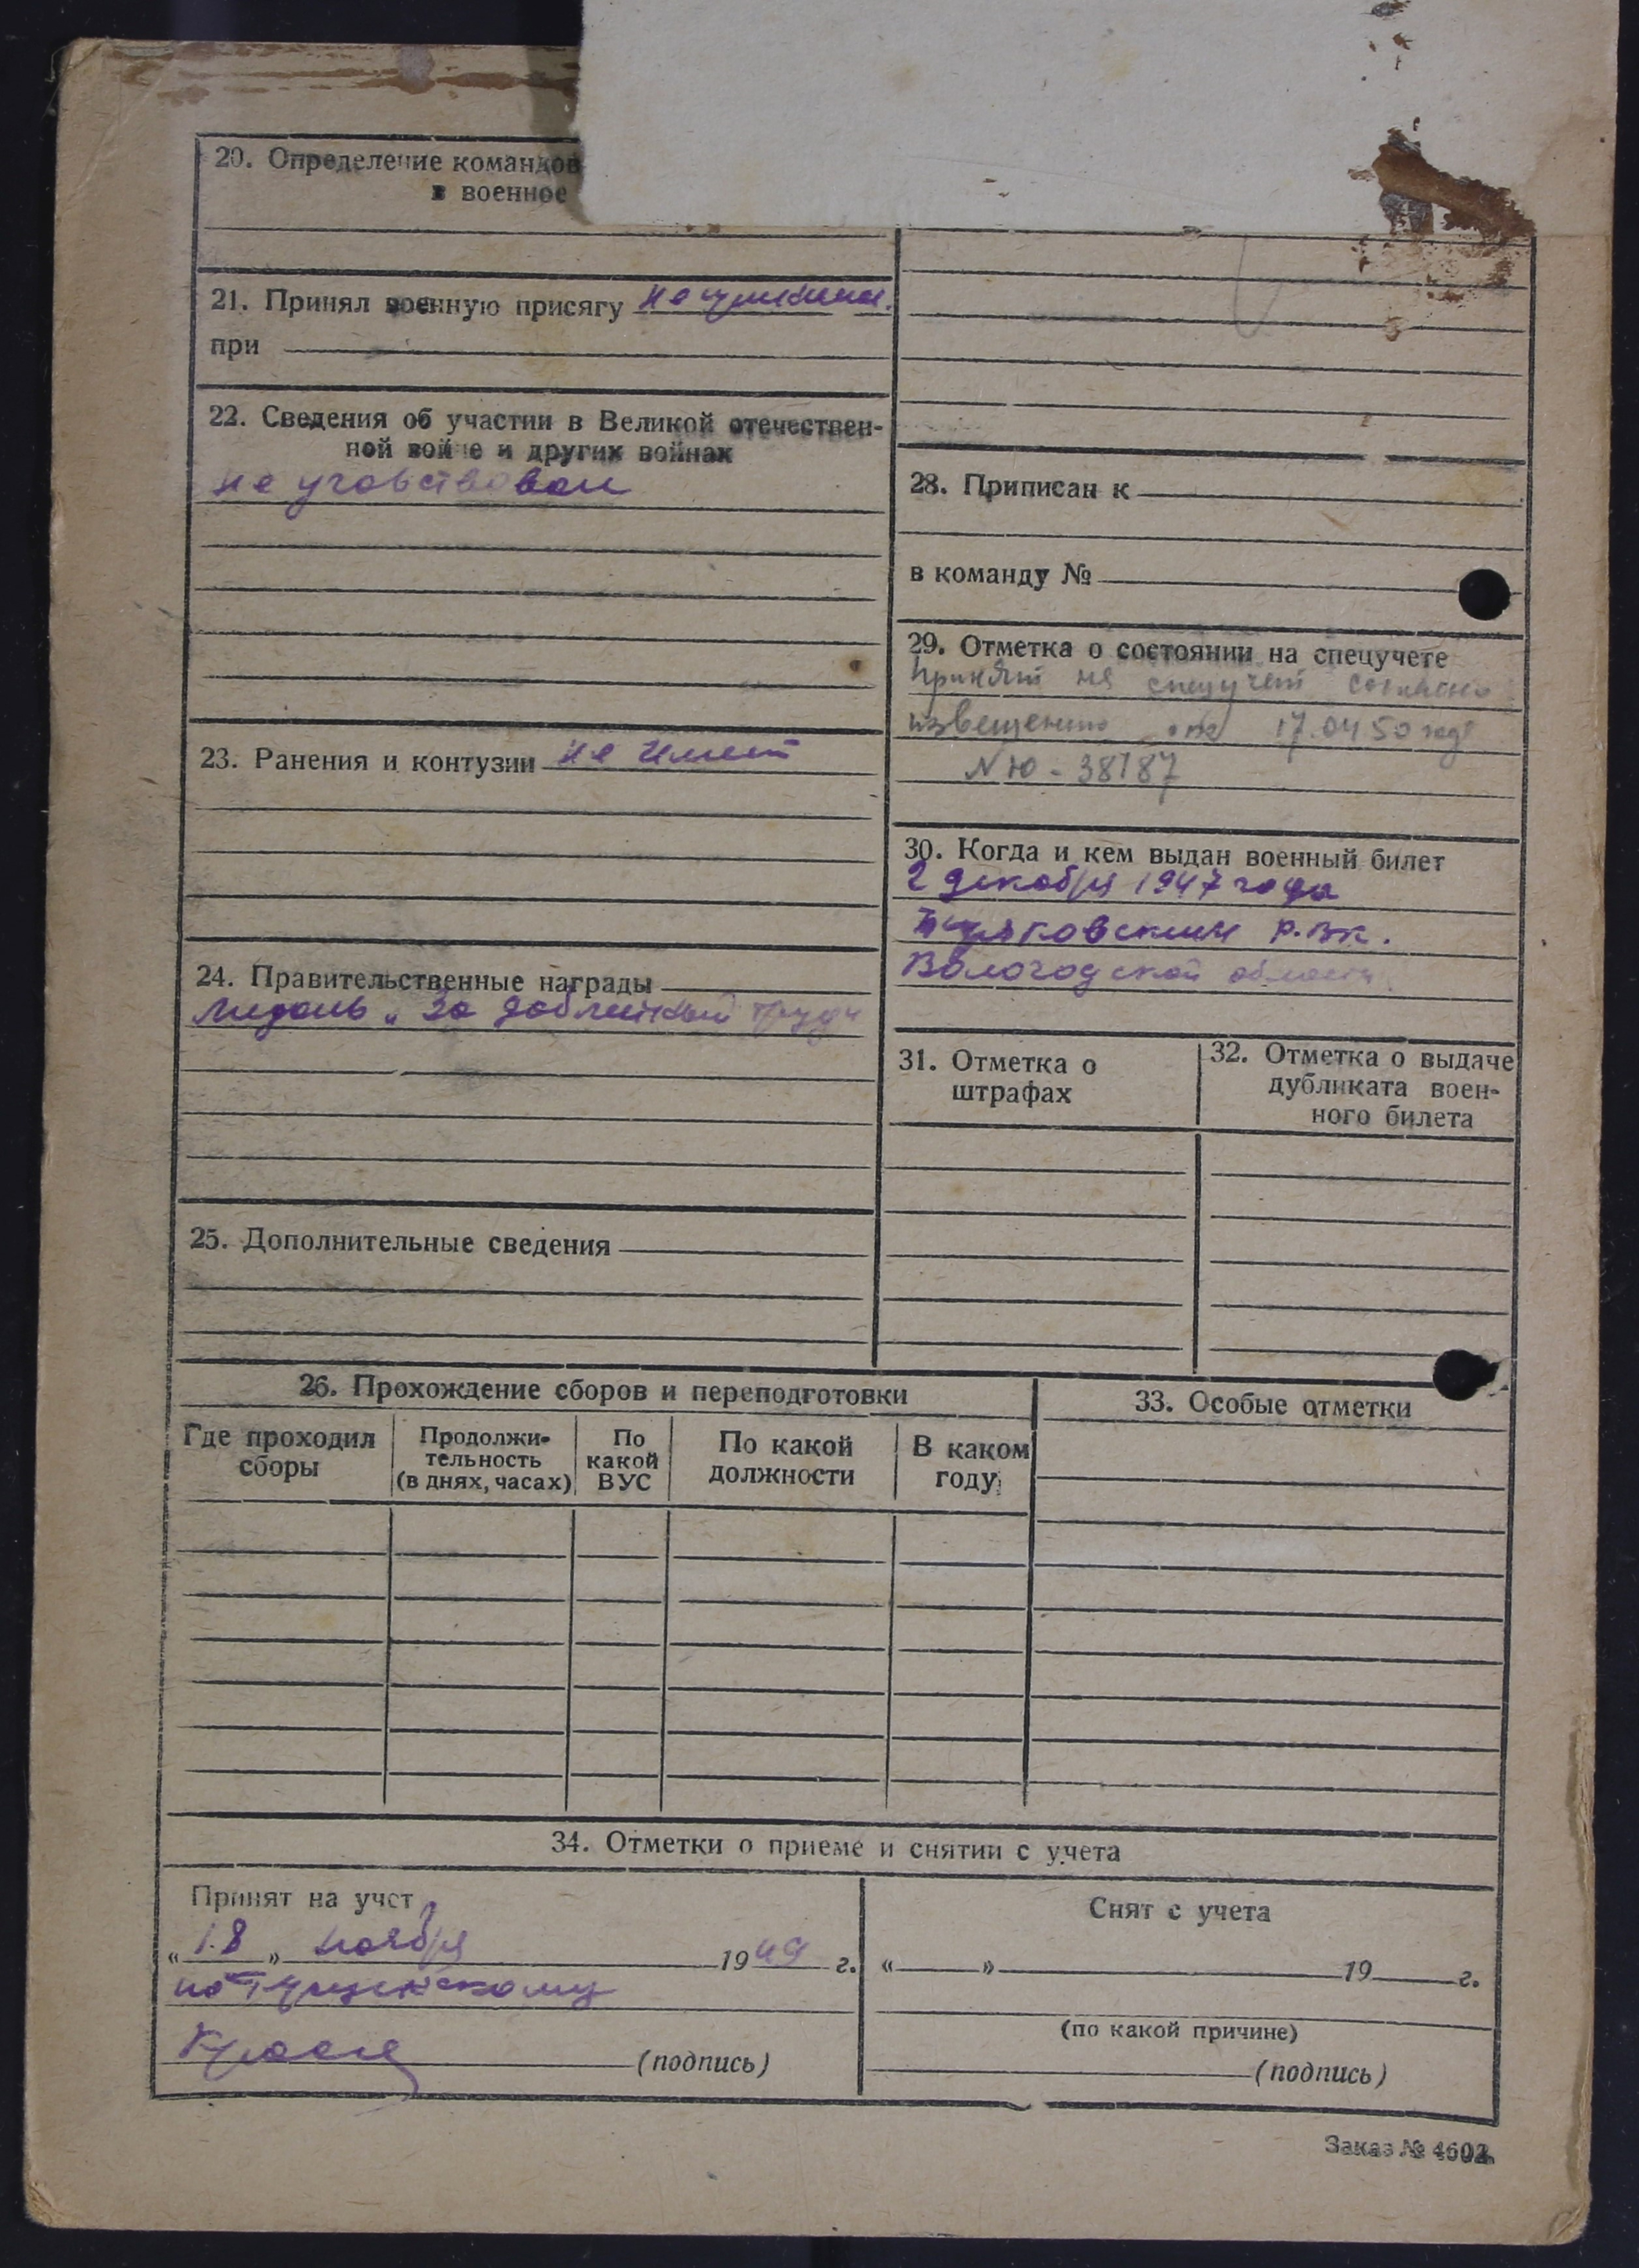 20. Определение командов
в военное
21. Принял военную присягу не принимал.
при
22. Сведения об участии в Великой отечествен-
ной войне и других войнах
не участвовал
23. Ранения и контузии не имеет
24. Правительственные награды
медаль „За доблестный труд"
25. Дополнительные сведения
28. Приписан к
в команду №
29. Отметка о состоянии на спецучете
Принят на спецучет согласно
извещению от 17.04 50 года
N Ю-38187
30. Когда и кем выдан военный билет
2 декабря 1947 года
р.вк.
Вологодской области
31. Отметка о
штрафах
32. Отметка о выдаче
дубликата воен-
ного билета
26. Прохождение сборов и переподготовки
Где проходил
сборы
Продолжи-
тельность
(в днях, часах)
По
какой
ВУС
По какой
должности
В каком
году
33. Особые отметки
34. Отметки о приеме и снятии с учета
Принят на учет
„18" ноября 1949 г.
по
(подпись)
Снят с учета
„ " 19 г.
(по какой причине)
(подпись)
Заказ №